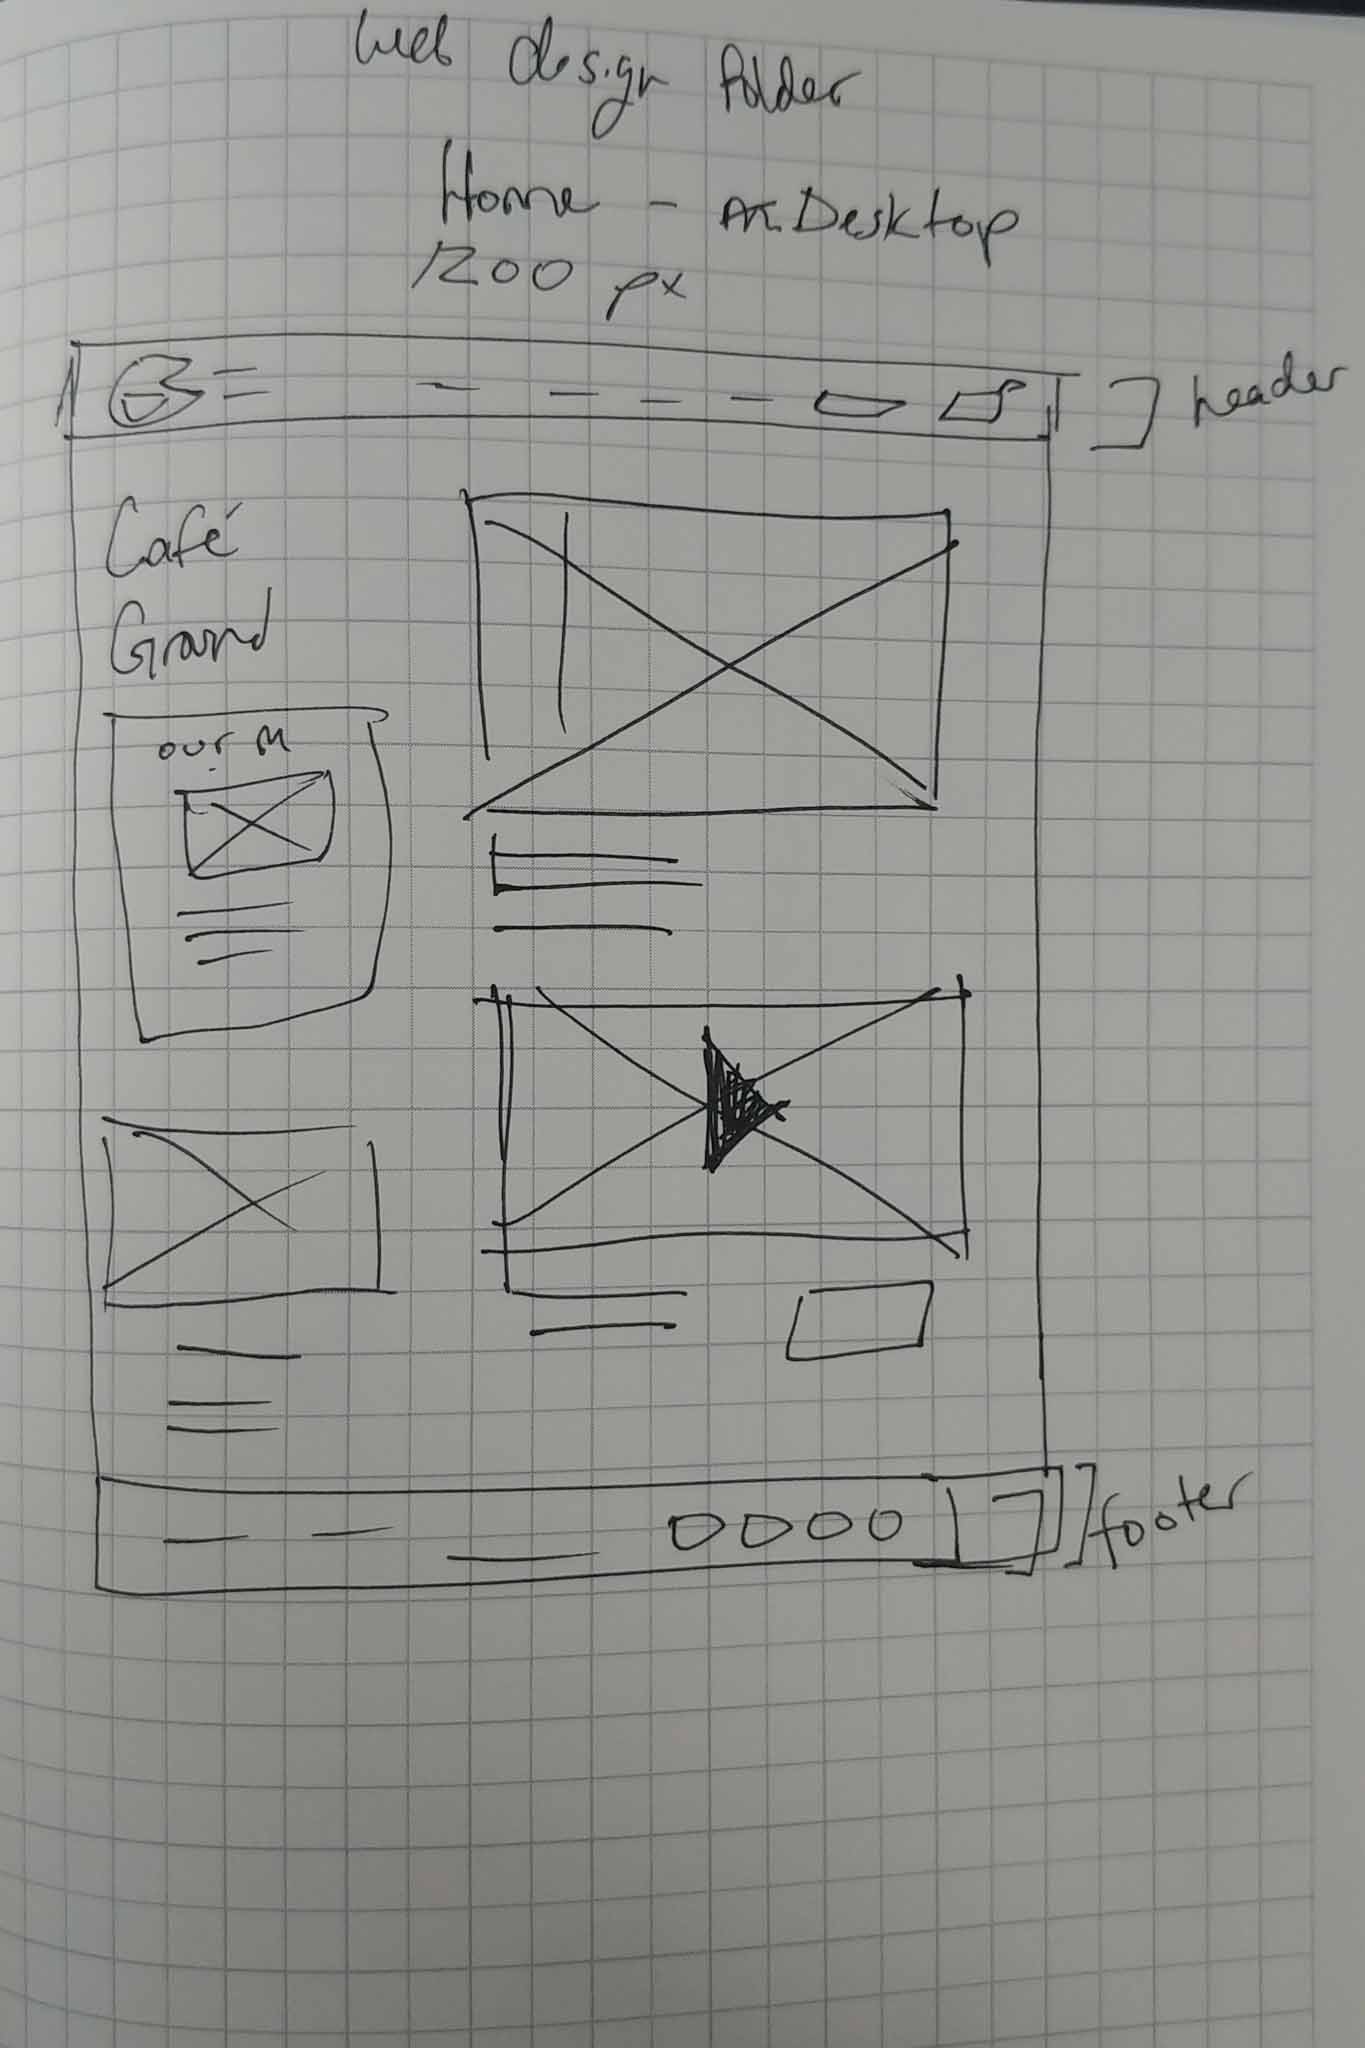 Web design folder
Home - Desktop
1200 px
header
Café
Grand
our m
footer